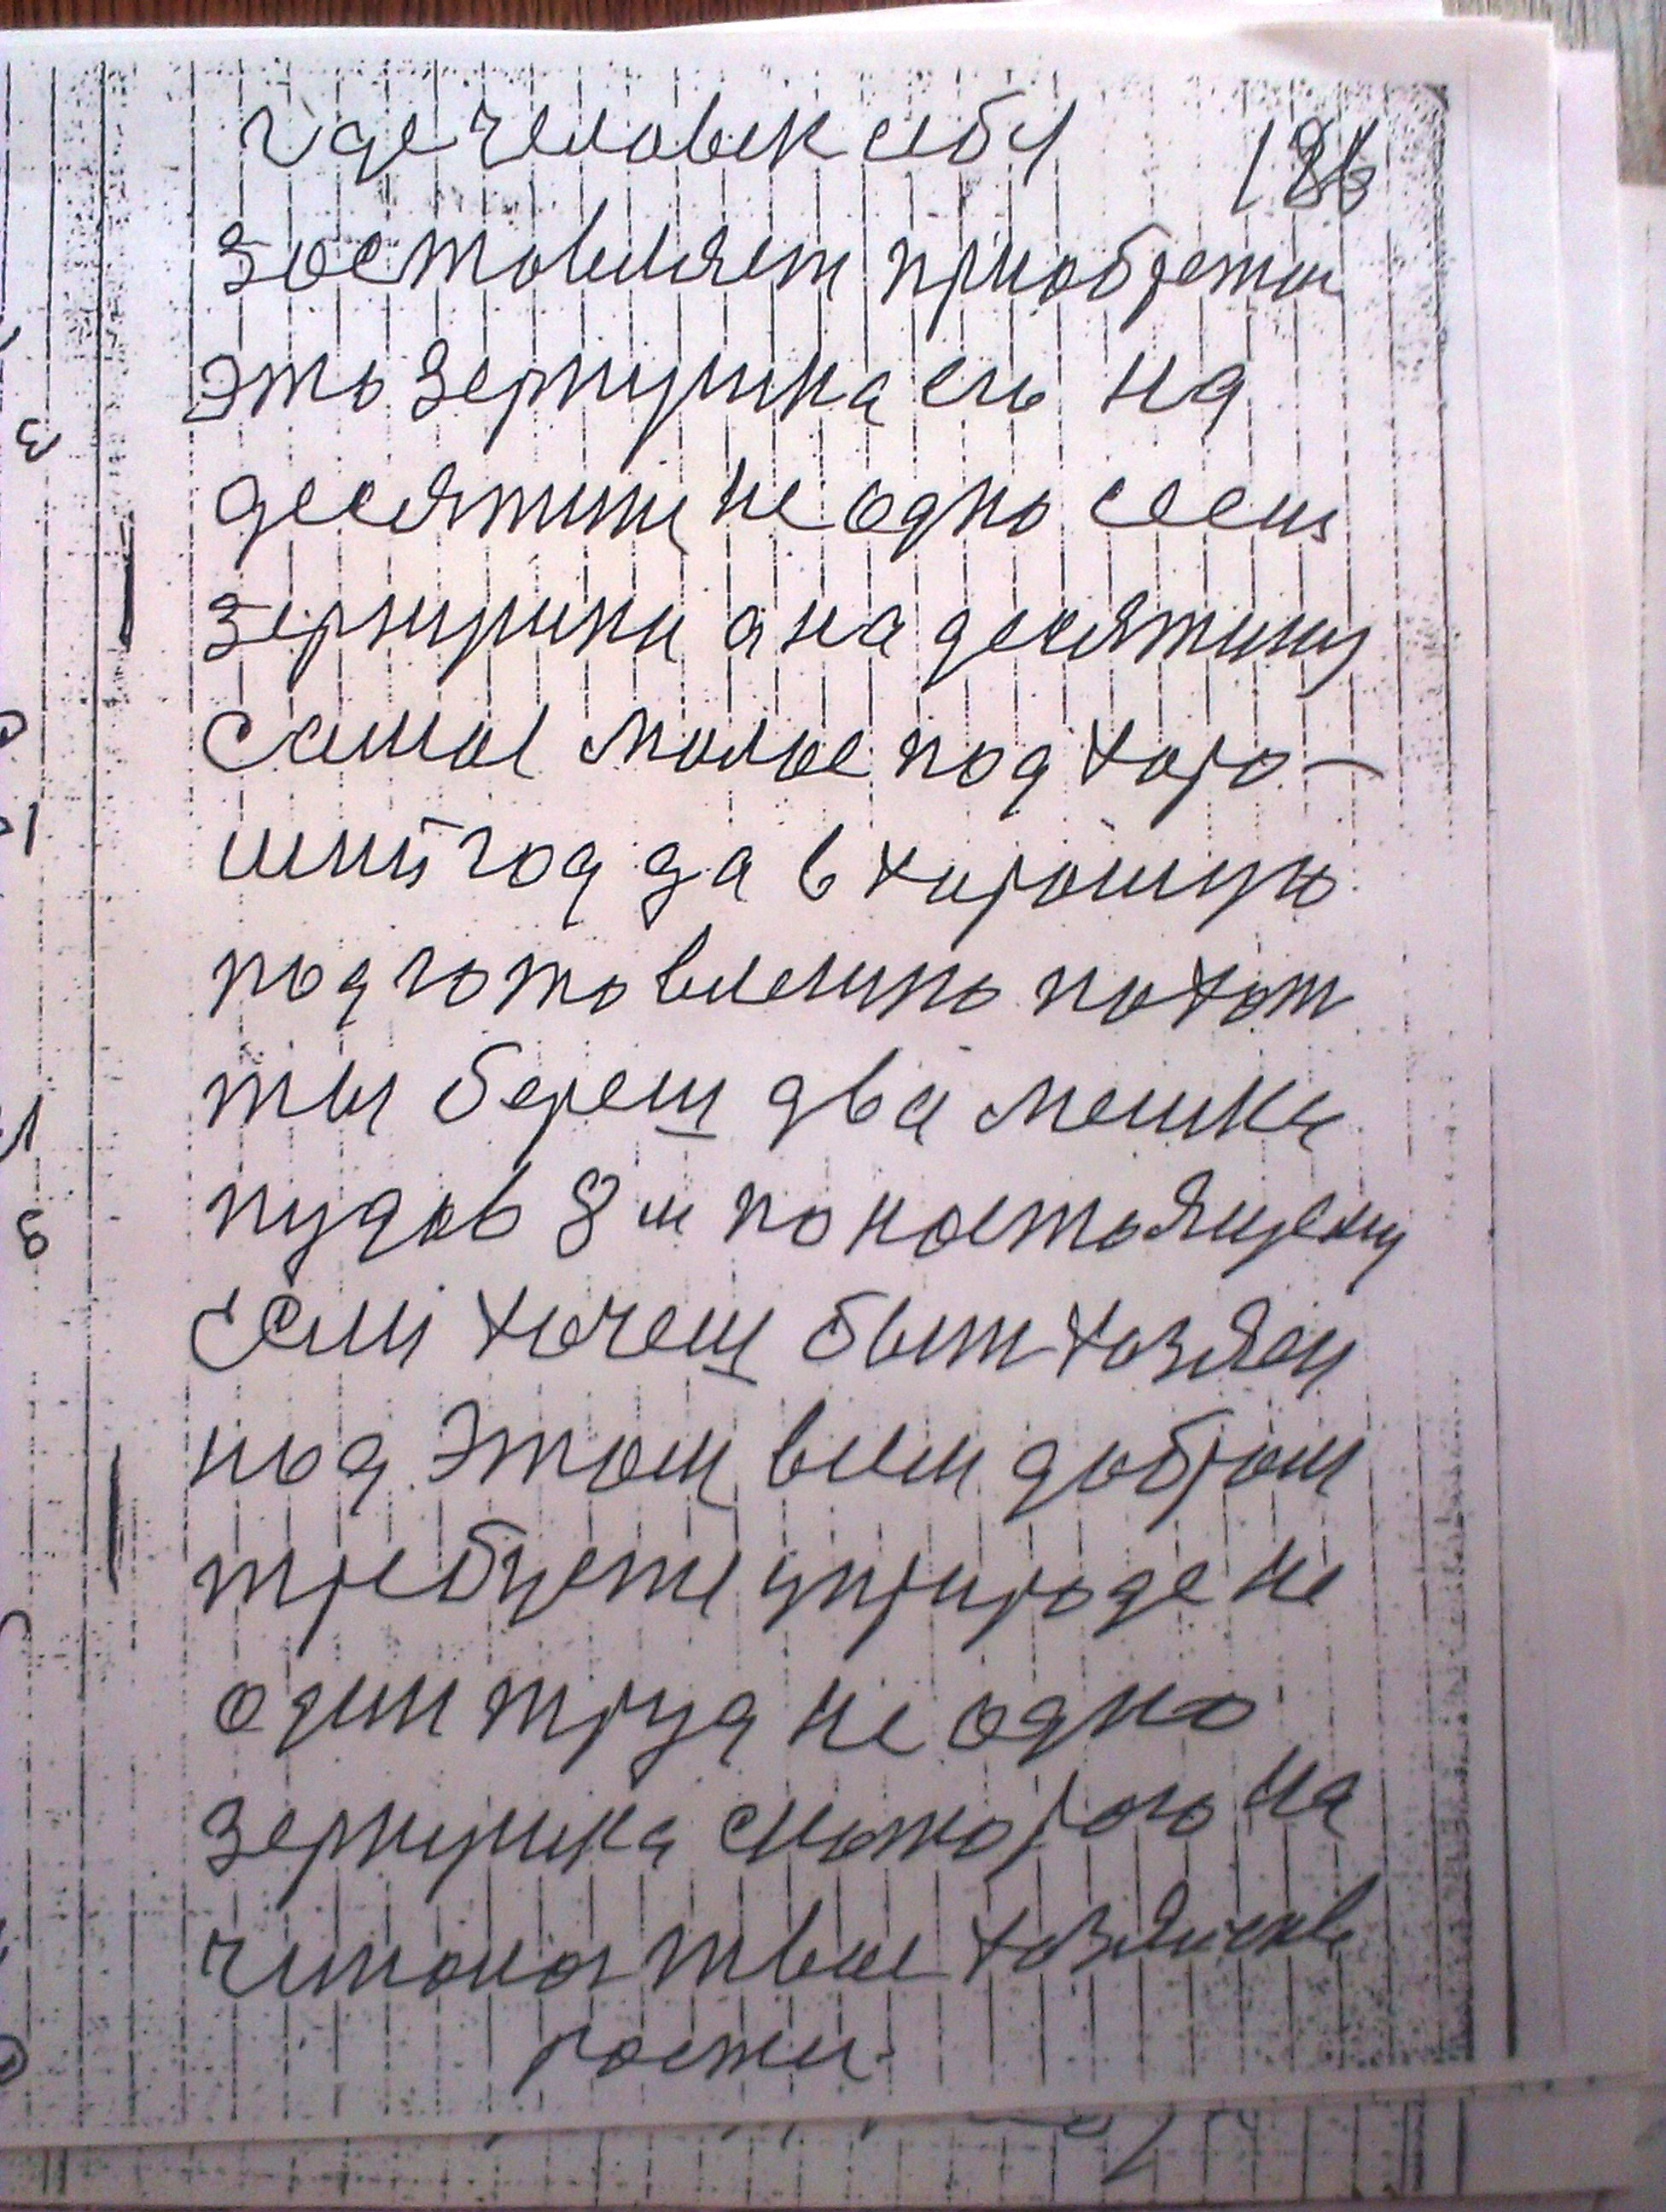 где человек себя
186
заставляет приобрести
это зернушка его на
десятини не одно сееш
зернушки а на десятину
самое малое под хоро-
ший год да в хорошую
подготовленую пахот
ты береш два мешка
пудов 8м по настоящему
Если хочеш быт хозяен
над этом всем добром
требуете у природе не
один труд не одно
зернушка с которого на
чиналось твое хозяйства
расти.